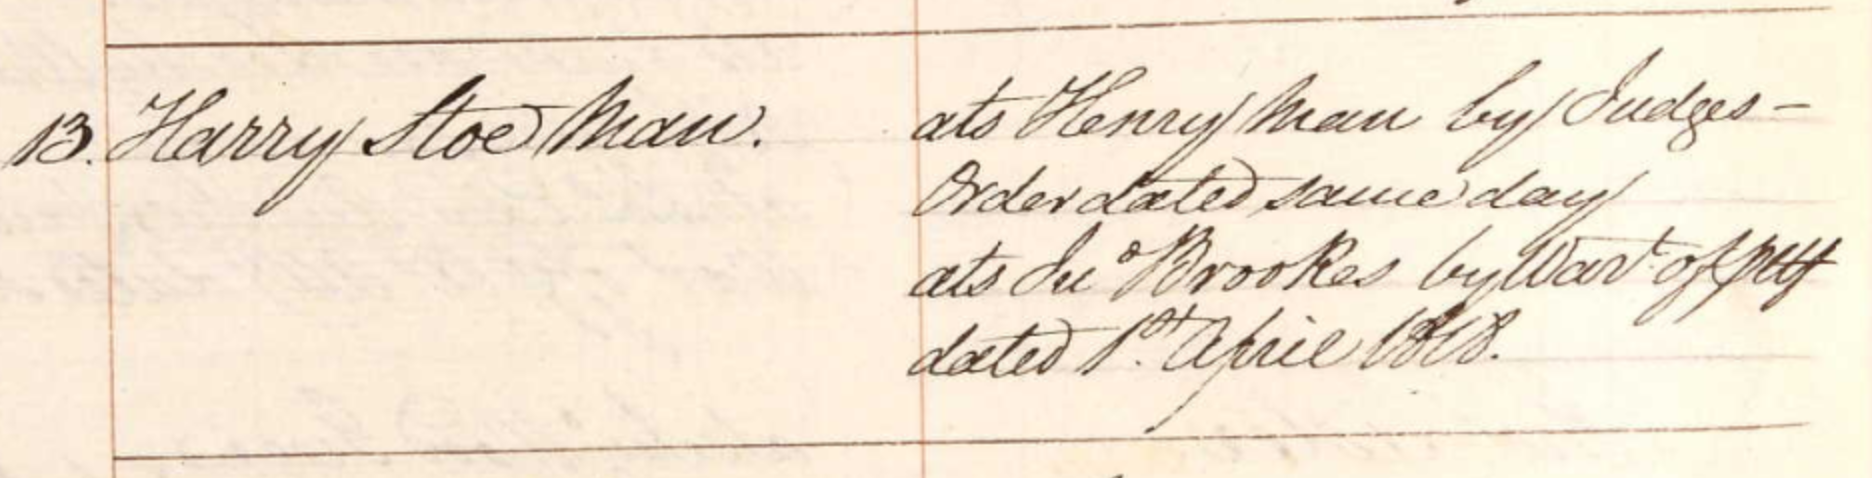 13. Harry Stoe Man.
ats Henry Man by Judges -
Order dated same day
ats Jnᵒ Brookes by Warᵗ of Att
dated 1st. April 1818.